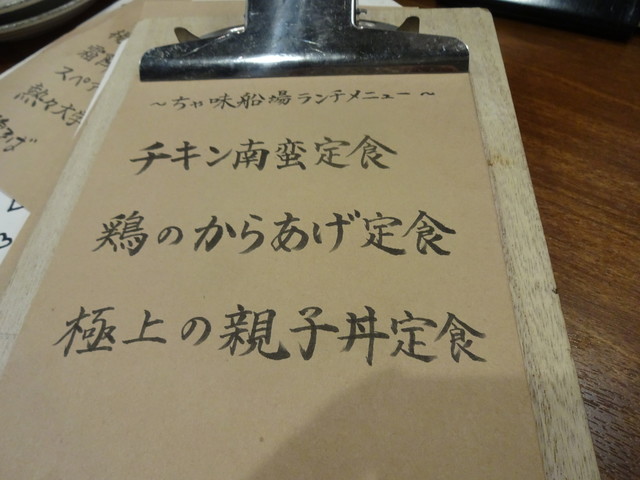 ～ちゃ味船場ランチメニュー～
チキン南蛮定食
鶏のからあげ定食
極上の親子丼定食
スペ
熱々大学